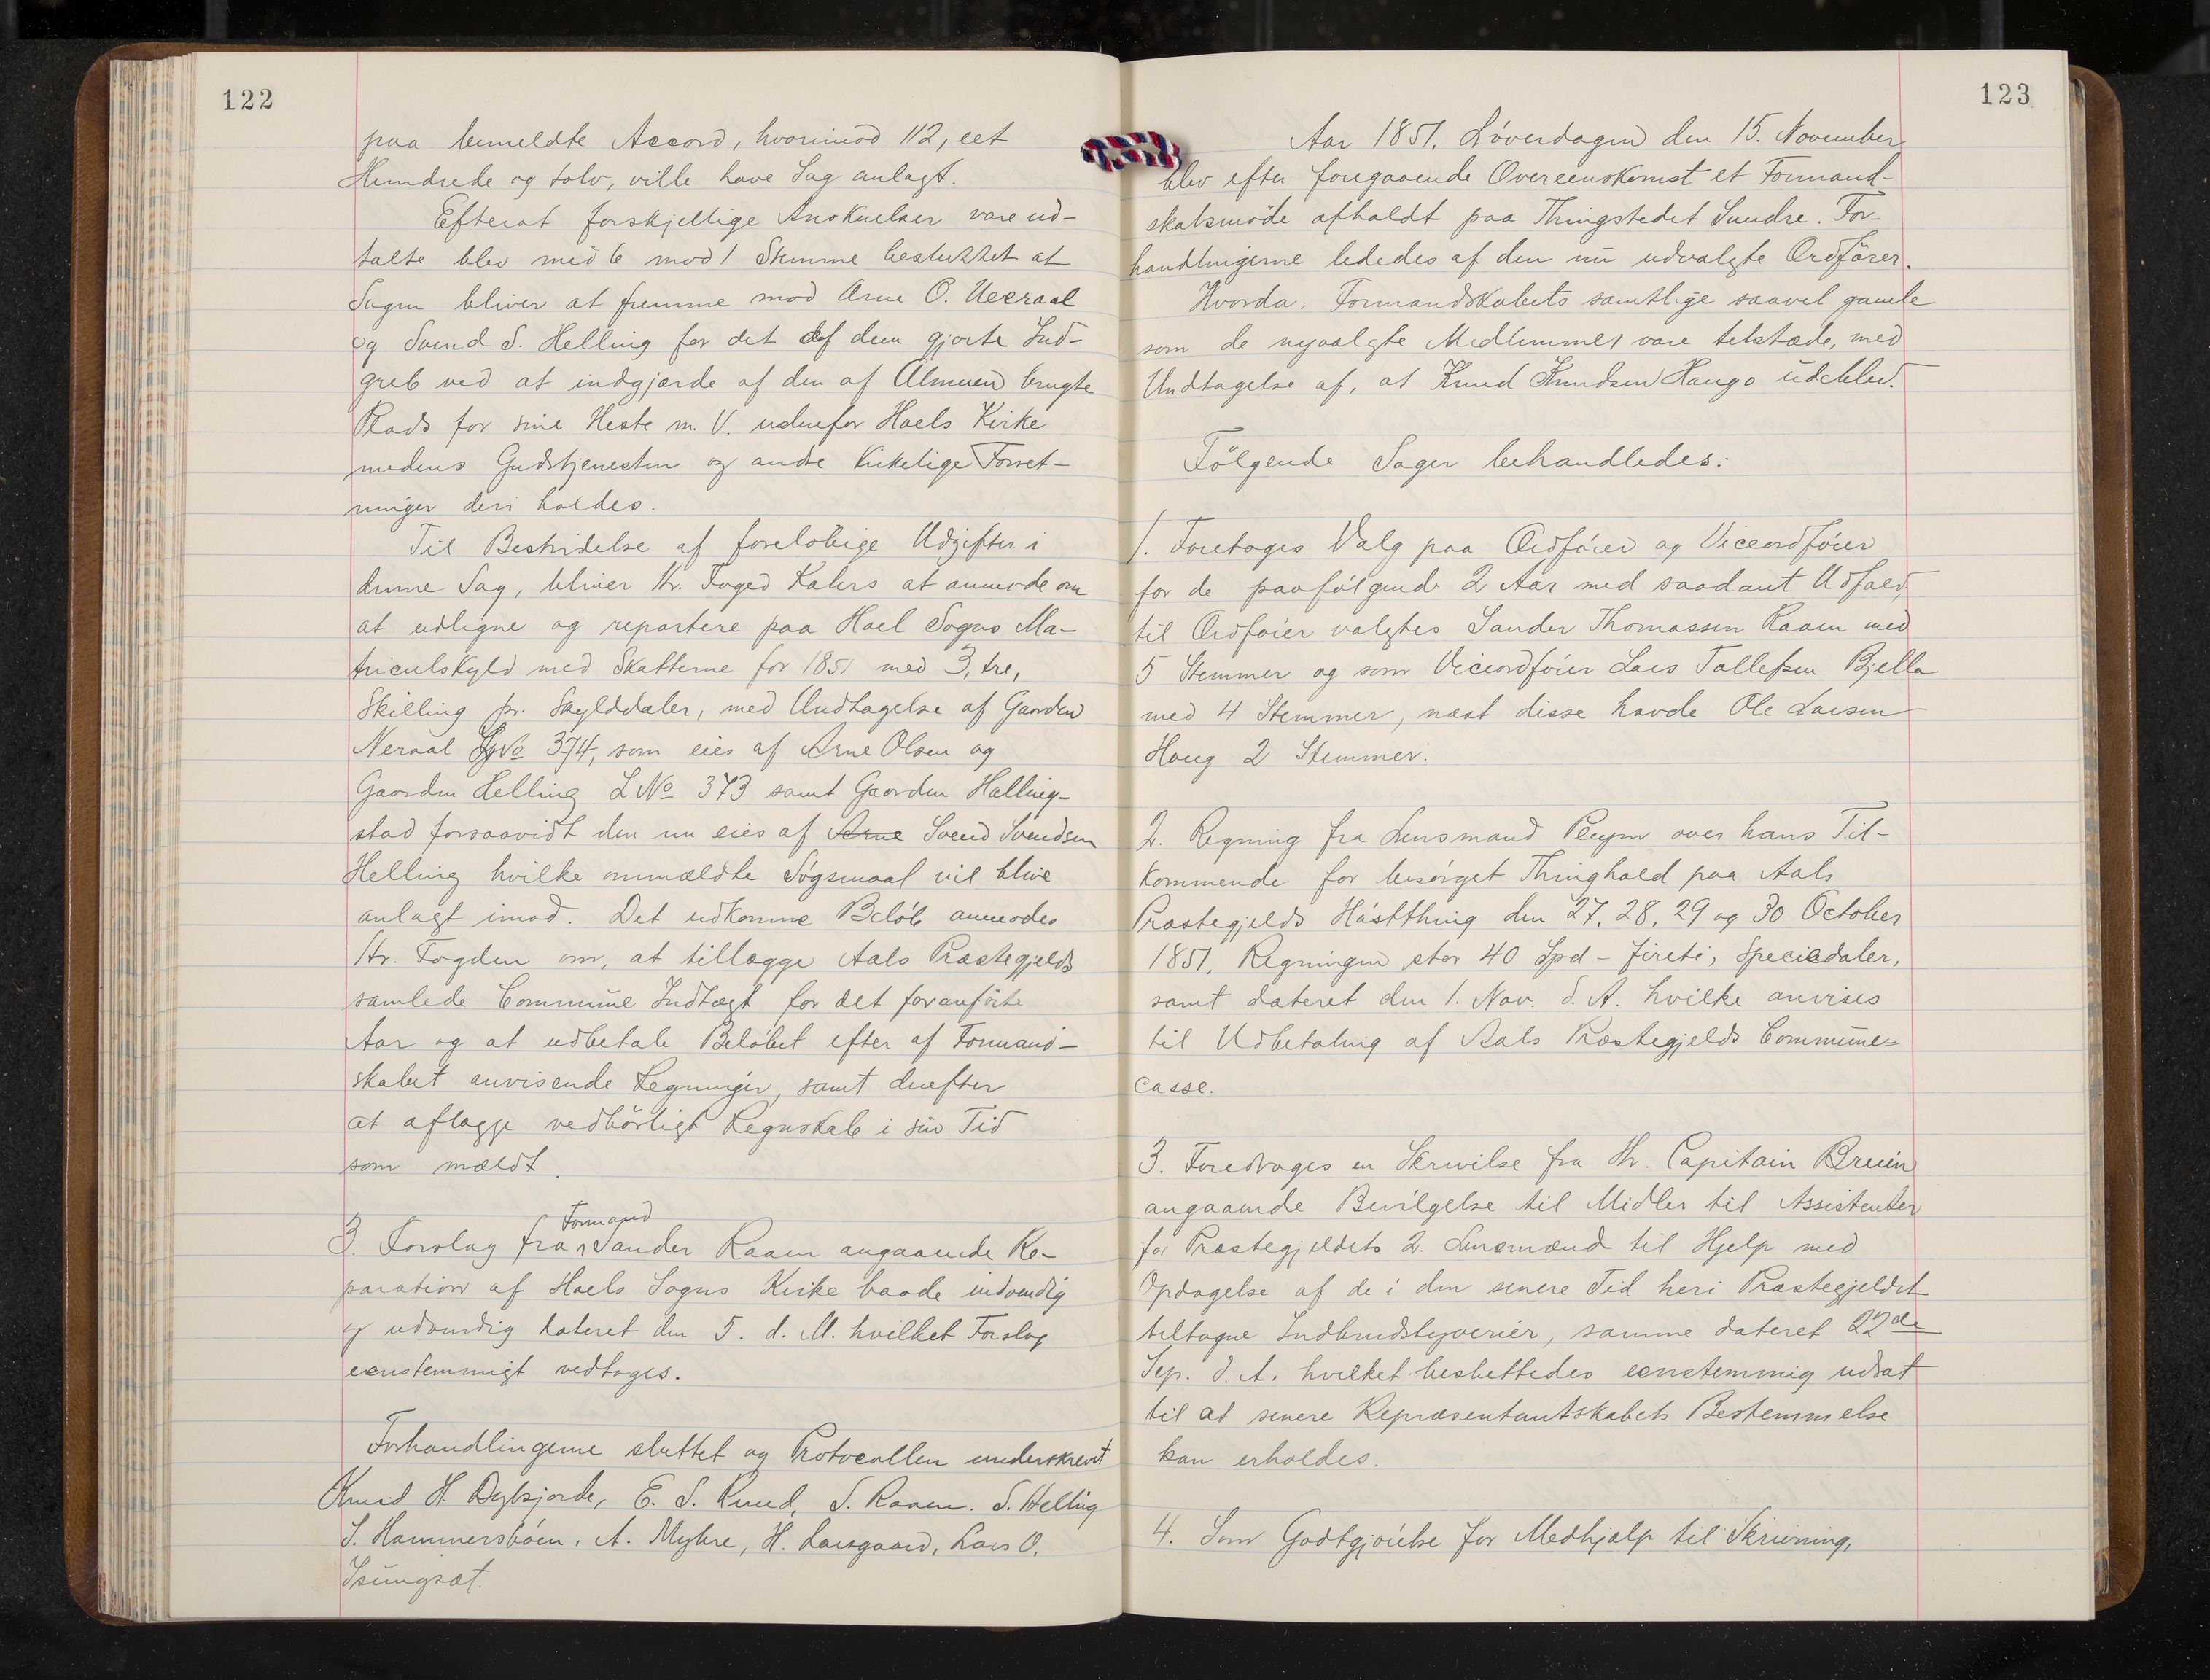 122
paa bemeldte Accord, hvorimod 112, eet
Hundrede og tolv, ville have Sag anlagt.
Efterat forskjellige Anskuelser vare ud-
talte blev med 6 mod 1 Stemme besluttet at
Sagen bliver at fremme mod Arne O. Neeraal
og Svend S. Helling for det af dem gjorte Ind-
greb ved at indgjærde af den af Almuen brugte
Plads for sine Heste m. V. udenfor Hoels Kirke
medens Gudstjenesten og andre Kirkelige Forret-
ninger deri holdes.
Til Bestridelse af foreløbige Udgifter i
denne Sag, bliver Hr. Foged Kalers at anmode om
at udligne og repartere paa Hoel Sogns Ma-
triculskyld med Skatterne for 1851 med 3, tre,
Skilling pr. Skylddaler, med Undtagelse af Gaarden
Neraal LNo 374, som eies af Arne Olsen og
Gaarden Helling LNo 373 samt Gaarden Helling-
stad forsaavidt den nu eies af Arne Svend Svendsen
Helling hvilke ommældte Søgsmaal vil blive
anlagt imod. Det udkomne Beløb anmodes
Hr. Fogden om, at tillægge Aals Præstegjelds
samlede Commune Indtægt for det foranførte
Aar og at udbetale Beløbet efter af Formand-
skabet anvisende Regninger, samt derefter
at aflægge vedbørligt Regnskab i sin Tid
som mældt.
3. Forslag fra Formand Sander Raaen angaaende Re-
paration af Hoels Sogns Kirke baade indvendig
og udvendig dateret den 5. d. M. hvilket Forslag
eenstemmigt vedtoges.
Forhandlingerne sluttet og Protocollen underskrevet
Knud H. Dybsjorde, E. S. Ruud, S. Raaen. S. Helling
S. Hammersbøen, A. Myhre, H. Larsgaard, Lars O.
123
Aar 1851, Løverdagen den 15. November
blev efter foregaaende Overeenskomst et Formand-
skabsmøde afholdt paa Thingstedet Sundre. For-
handlingerne lededes af den nu udvalgte Ordfører.
Hvorda, Formandskabets samtlige saavel gamle
som de nyvalgte Medlemmer vare tilstæde, med
Undtagelse af, at Knud Knudsen Haugo udeblev.
Følgende Sager behandledes:
1. Foretoges Valg paa Ordfører og Viceordfører
for de paafølgende 2 Aar med saadant Udfald,
til Ordfører valgtes Sander Thomassen Raaen med
5 Stemmer og som Viceordfører Lars Tollefsen Bjella
med 4 Stemmer, næst disse havde Ole Larsen
Haug 2 Stemmer.
2. Regning fra Lensmand over hans Til-
kommende for besørget Thinghold paa Aals
Præstegjelds Høstthing den 27, 28, 29 og 30 October
1851, Regningen stor 40 Spd - fireti, Speciedaler,
samt dateret den 1. Nov. d. A. hvilke anvises
til Udbetaling af Aals Præstegjelds Commune=
casse.
3. Foredroges en Skrivelse fra Hr. Capitain Bruun
angaaende Bevilgelse til Midler til Assistenter
for Præstegjeldets 2. Lensmænd til Hjelp med
Opdagelse af de i den senere Tid heri Præstegjeldet
tiltagne Indbrudstyverier, samme dateret 22de
Sep. d. A. hvilket besluttedes eenstemmig udsat
til at senere Repræsentantskabets Bestemmelse
kan erholdes.
4. Som Godtgjørelse for Medhjælp til Skrivning,